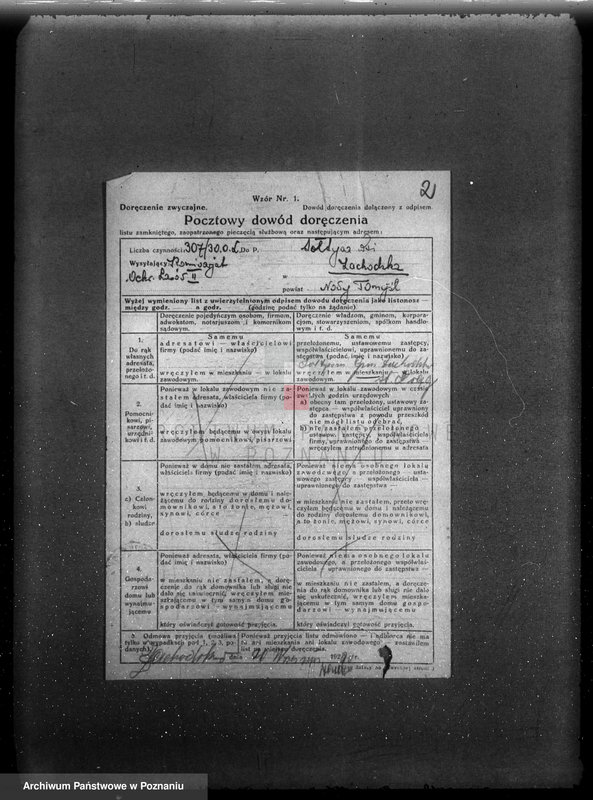 2
Wzór Nr. 1.
Doręczenie zwyczajne. Dowód doręczenia dołączony z odpisem
Pocztowy dowód doręczenia
listu zamkniętego, zaopatrzonego pieczęcią służbową oraz następującym adresem:
Liczba czynności 307/30.O.L. Do P. Sołtysa
Wysyłający Komisarjat w Zachodzka
Ochr. Lasów II powiat Nowy Tomyśl
Wyżej wymieniony list z uwierzytelnionym odpisem dowodu doręczenia jako listonosz —
między godz. a godz. (godzinę podać tylko na żądanie).
Doręczenie pojedyńczym osobom, firmom, adwokatom, notarjuszom i komornikom sądowym.
Doręczenie władzom, gminom, korporacjom, stowarzyszeniom, spółkom handlowym i t. d.
1.
Do rąk własnych adresata, przełożonego i t. d.
Samemu
adresatowi — właścicielowi
firmy (podać imię i nazwisko)
wręczyłem w mieszkaniu — w lokalu
zawodowym.
Samemu
przełożonemu, ustawowemu zastępcy,
współwłaścicielowi, uprawnionemu do zastępstwa (podać imię i nazwisko)
wręczyłem w mieszkaniu — w lokalu
zawodowym.
2.
Pomocnikowi, pisarzowi, urzędnikowi i t. d.
Ponieważ w lokalu zawodowym nie zastałem adresata, właściciela firmy (podać imię i nazwisko)
wręczyłem będącemu w owym lokalu
zawodowym pomocnikowi, pisarzowi
Ponieważ w lokalu zawodowym w czasie
zwykłych godzin urzędowych
a) obecny tam przełożony, ustawowy zastępca — współwłaściciel uprawniony
do zastępstwa z powodu przeszkód
nie mógł listu odebrać,
b) nie zastałem przełożonego
ustawow. zastępcy, współwłaściciela
firmy, uprawnionego do zastępstwa
wręczyłem zatrudnionemu u adresata
W POZNANIU
3.
c) Członkowi rodziny,
b) słudze
Ponieważ w domu nie zastałem adresata,
właściciela firmy (podać imię i nazwisko)
wręczyłem będącemu w domu i należącemu do rodziny dorosłemu domownikowi, a to żonie, mężowi,
synowi, córce
dorosłemu słudze rodziny
Ponieważ niema osobnego lokalu
zawodowego a przełożonego — ustawowego zastępcy współwłaściciela —
uprawnionego do zastępstwa —
w mieszkaniu nie zastałem, przeto wręczyłem będącemu w domu i należącemu
do rodziny dorosłemu domownikowi,
a to żonie, mężowi, synowi, córce
dorosłemu słudze rodziny
4.
Gospodarzowi domu lub wynajmującemu
Ponieważ adresata, właściciela firmy (podać imię i nazwisko)
w mieszkaniu nie zastałem, a doręczenie do rąk domownika lub sługi nie
dało się uskutecznić, wręczyłem mieszkającemu w tym samym domu gospodarzowi — wynajmującemu
który oświadczył gotowość przyjęcia.
Ponieważ niema osobnego lokalu
zawodowego, a przełożonego współwłaściciela — uprawnionego do zastępstwa —
w mieszkaniu nie zastałem, a doręczenia do rąk domownika lub sługi nie dało
się uskutecznić, wręczyłem mieszkającemu w tym samym domu gospodarzowi — wynajmującemu
który oświadczył gotowość przyjęcia.
5. Odmowa przyjęcia (możliwa tylko w wypadkach pod 1, 2, 3, podanych).
Ponieważ przyjęcia listu odmówiono — i adbiorca nie ma ani mieszkania ani lokalu zawodowego — zostawiłem list na miejscu doręczenia.
dnia
Archiwum Państwowe w Poznaniu